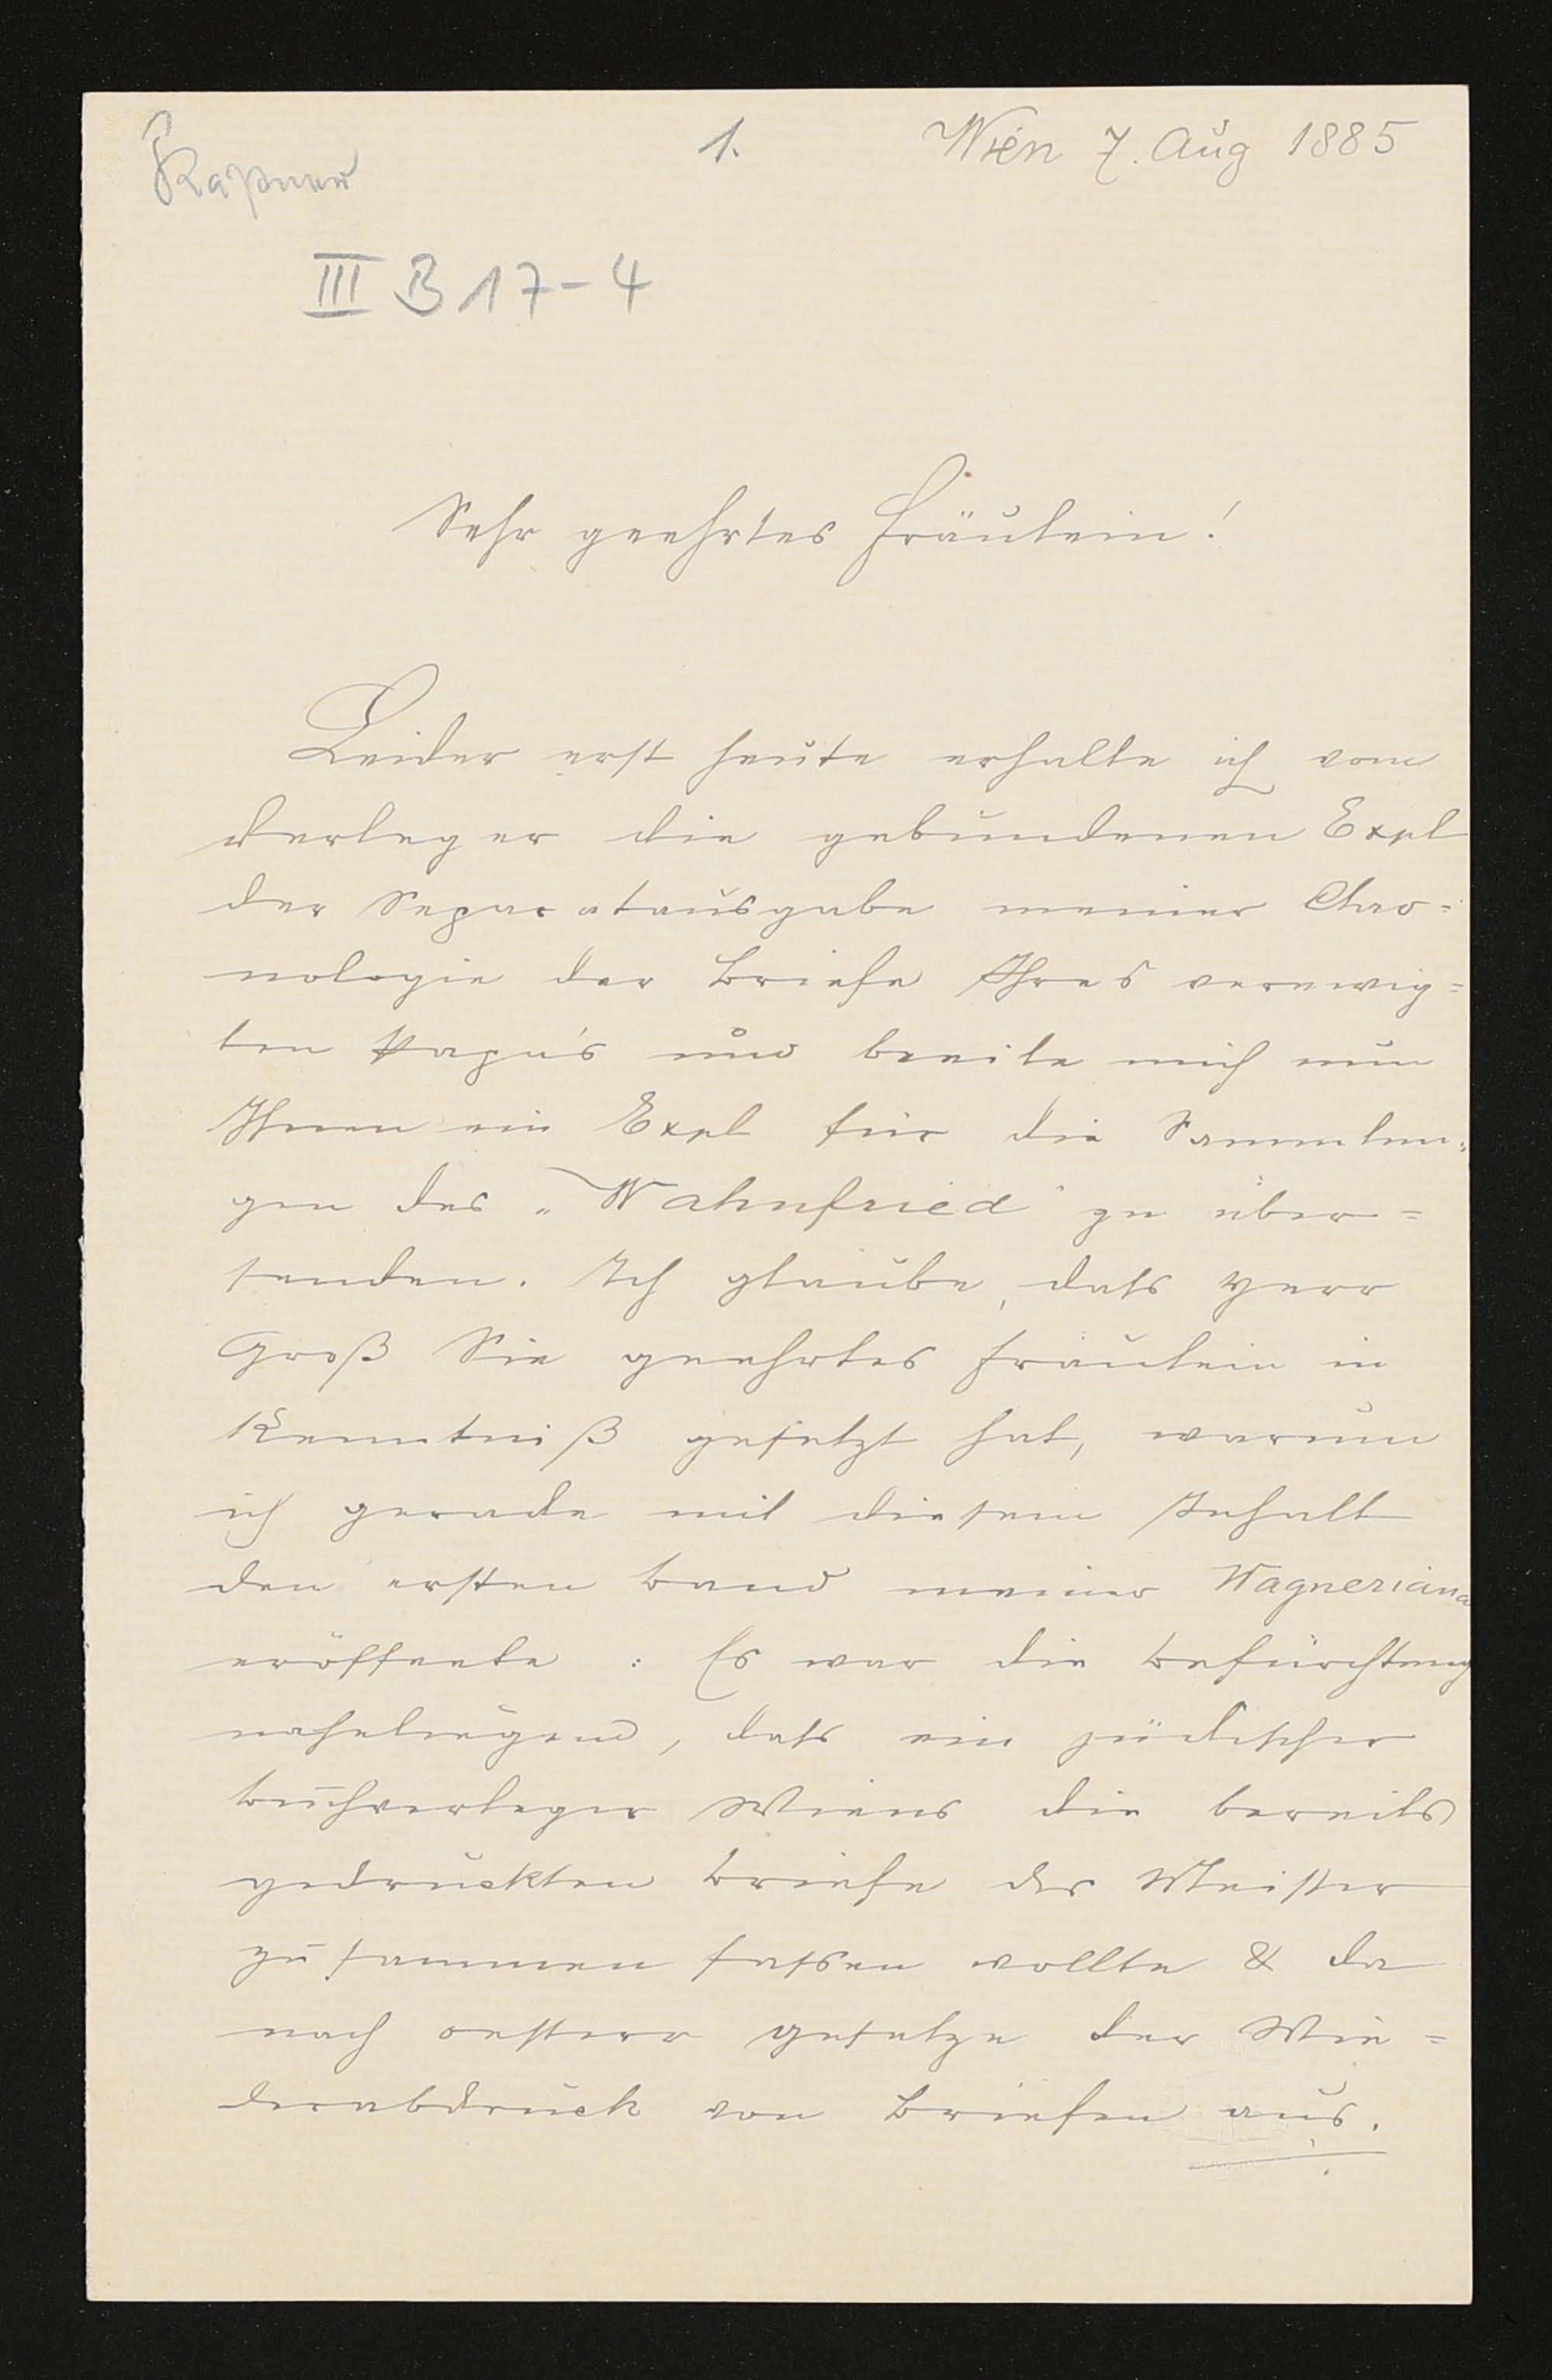 Kastner
1.
Wien 7. Aug 1885
III B 17-4
Sehr geehrtes Fräulein!
Leider erst heute erhalte ich vom
Verleger die gebundenen Expl
der Separatausgabe meiner Chro=
nologie der Briefe Ihres verewig=
ten Papa's und beeile mich nun
Ihnen ein Expl für die Sammlun=
gen des „Wahnfried" zu über=
senden. Ich glaube, dass Herr
Groß Sie geehrtes Fräulein in
Kenntniß gesetzt hat, warum
ich gerade mit diesem Inhalt
den ersten Band meiner Wagneriana
eröffnete : Es war die Befürchtung
naheliegend, dass ein jüdischer
Buchverleger Wiens die bereits
gedruckten Briefe des Meister
zusammen fassen wollte & da
nach oesterr Gesetze der Wie=
derabdruck von Briefen aus.